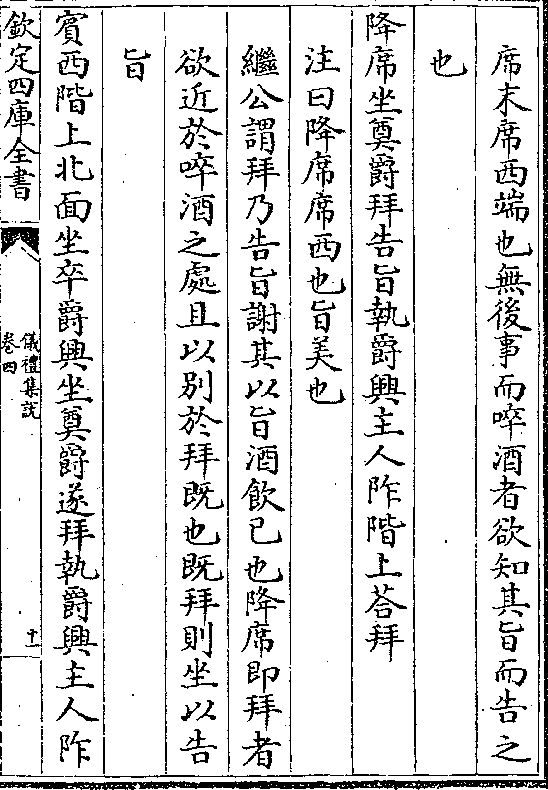 席末席西端也無後事而啐酒者欲知其旨而告之
也
降席坐奠爵拜告旨執爵興主人阼階上荅拜
注曰降席席西也旨美也
繼公謂拜乃告旨謝其以旨酒飲已也降席即拜者
欲近於啐酒之處且以别於拜既也既拜則坐以告
旨
賓西階上北面坐卒爵興坐奠爵遂拜執爵興主人阼
欽定四庫全書
儀禮集説
卷四
十一